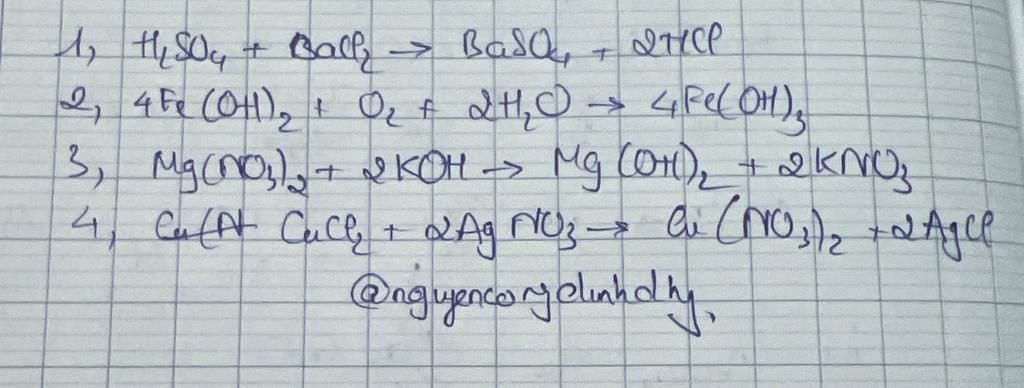 1, H₂SO₄ + BaCl₂ → BaSO₄ + 2HCl
2, 4Fe(OH)₂ + O₂ + 2H₂O → 4Fe(OH)₃
3, Mg(NO₃)₂ + 2KOH → Mg(OH)₂ + 2KNO₃
4, CuCl₂ + 2AgNO₃ → Cu(NO₃)₂ + 2AgCl